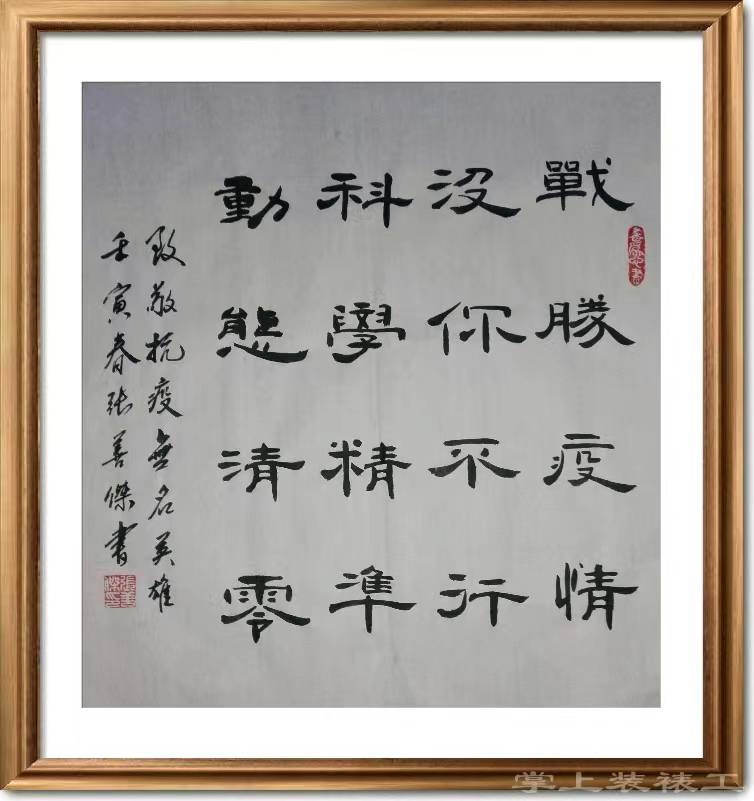 戰勝疫情
没你不行
科學精準
動態清零
致敬抗疫無名英雄
壬寅春張善傑書
掌上装裱工